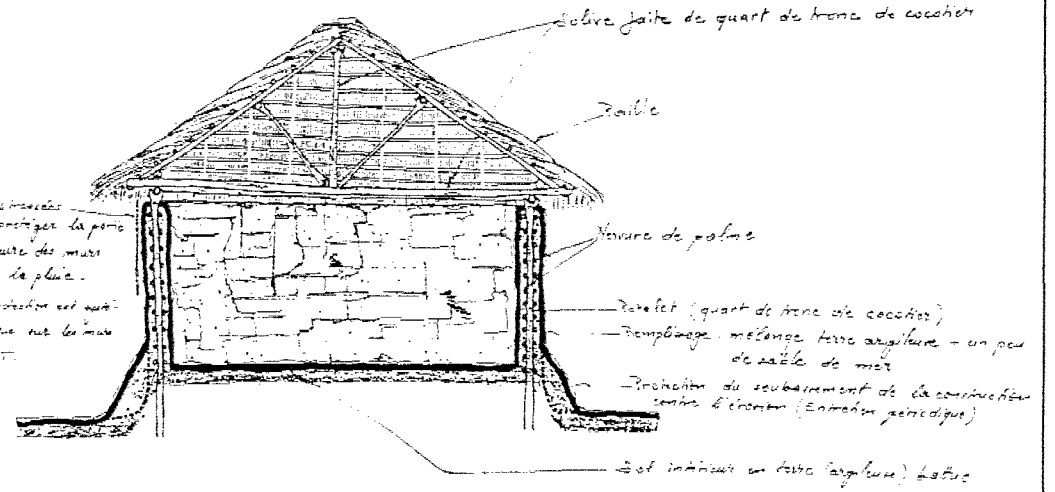 Solive faite de quart de tronc de cocotier
Paille
tressées
protéger la partie
des murs
la pluie.
protection est
sur les murs
Nervure de palme
Potelet (quart de tronc de cocotier)
Remplissage mélange terre argileuse + un peu
de sable de mer
Protection du soubassement de la construction
contre l'érosion (Entretien périodique)
Sol intérieur en terre (argileuse) battue